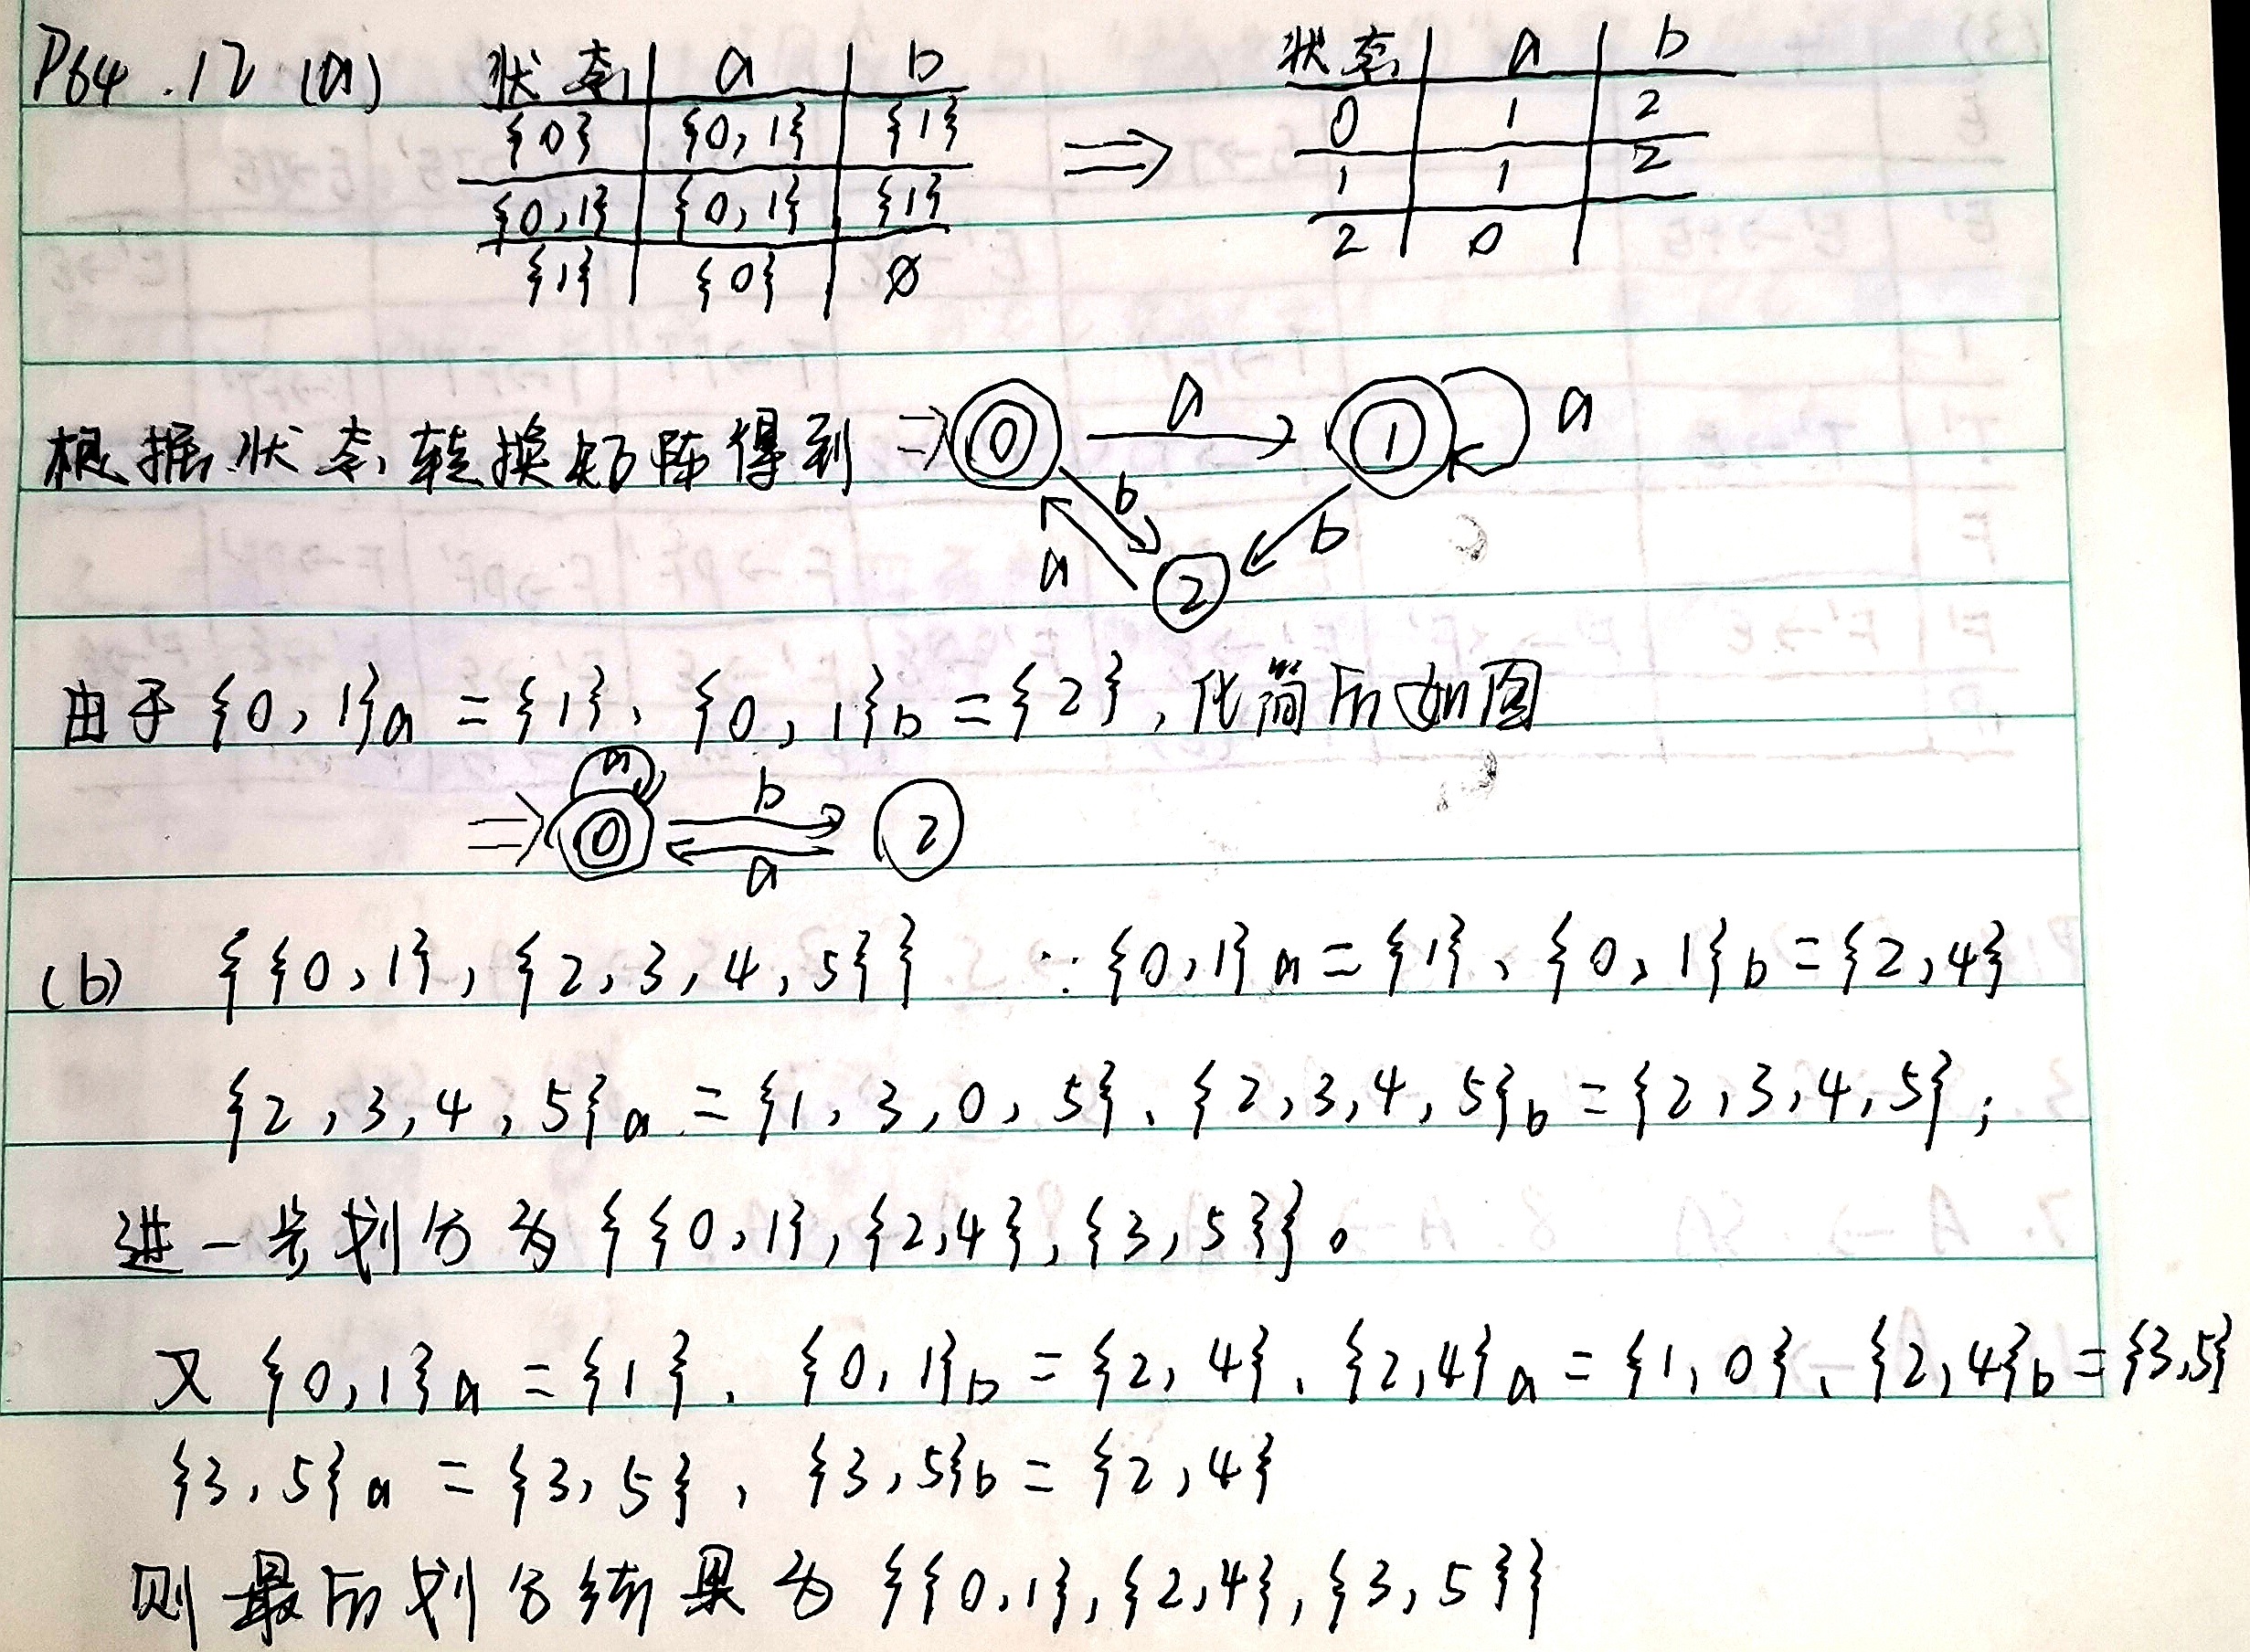 P64.12 (a) 状态 a b ⇒ 状态 a b
{0} {0,1} {1} 0 1 2
{0,1} {0,1} {1} 1 1 2
{1} {0} ∅ 2 0
根据状态转换矩阵得到 ⇒ 0 a 1 a
b a b 2
由于{0,1}a={1}、{0,1}b={2},化简后如图
⇒ 0 a b a 2
(b) {{0,1},{2,3,4,5}} ∵{0,1}a={1}、{0,1}b={2,4}
{2,3,4,5}a={1,3,0,5}、{2,3,4,5}b={2,3,4,5};
进一步划分为{{0,1},{2,4},{3,5}}。
又{0,1}a={1}、{0,1}b={2,4}、{2,4}a={1,0}、{2,4}b={3,5}
{3,5}a={3,5},{3,5}b={2,4}
则最后划分结果为{{0,1},{2,4},{3,5}}